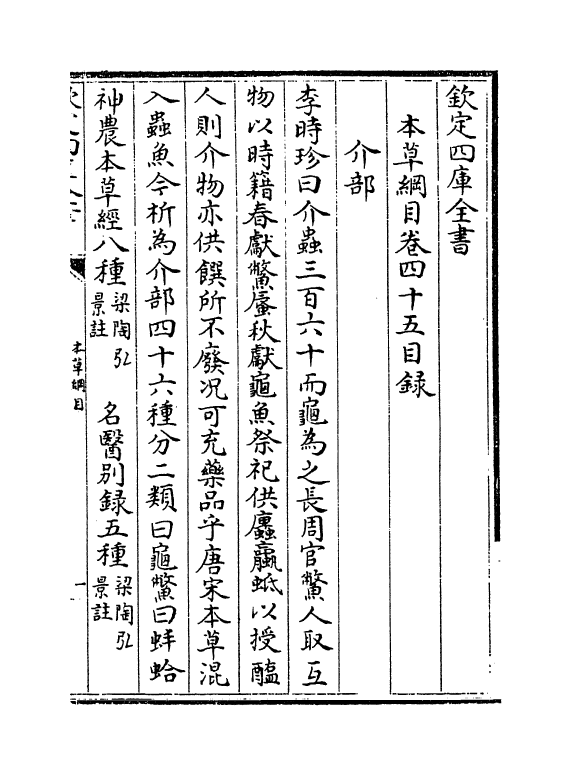 欽定四庫全書
本草綱目卷四十五目録
介部
李時珍曰介蟲三百六十而龜為之長周官鱉人取互
物以時籍春獻鱉蜃秋獻龜魚祭祀供蠯蠃蚳以授醢
人則介物亦供饌所不廢况可充藥品乎唐宋本草混
入蟲魚今析為介部四十六種分二類曰龜鱉曰蚌蛤
神農本草經八種梁陶弘景註 名醫别録五種梁陶弘景註
本草綱目
一